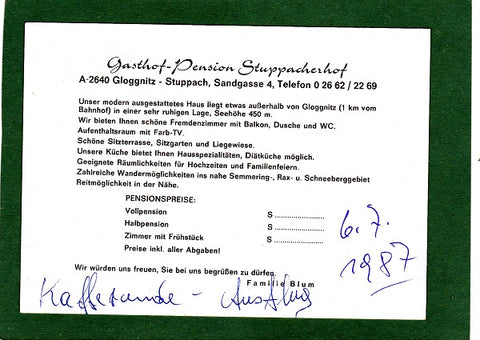 Gasthof-Pension Stuppacherhof
A-2640 Gloggnitz - Stuppach, Sandgasse 4, Telefon 0 26 62 / 22 69
Unser modern ausgestattetes Haus liegt etwas außerhalb von Gloggnitz (1 km vom
Bahnhof) in einer sehr ruhigen Lage, Seehöhe 450 m.
Wir bieten Ihnen schöne Fremdenzimmer mit Balkon, Dusche und WC.
Aufenthaltsraum mit Farb-TV.
Schöne Sitzterrasse, Sitzgarten und Liegewiese.
Unsere Küche bietet Ihnen Hausspezialitäten, Diätküche möglich.
Geeignete Räumlichkeiten für Hochzeiten und Familienfeiern.
Zahlreiche Wandermöglichkeiten ins nahe Semmering-, Rax- u. Schneeberggebiet
Reitmöglichkeit in der Nähe.
PENSIONSPREISE:
Vollpension S ..............
Halbpension S ..............
Zimmer mit Frühstück S ..............
Preise inkl. aller Abgaben!
6.7.
1987
Wir würden uns freuen, Sie bei uns begrüßen zu dürfen.
Familie Blum
Kafferunde - Ausflug